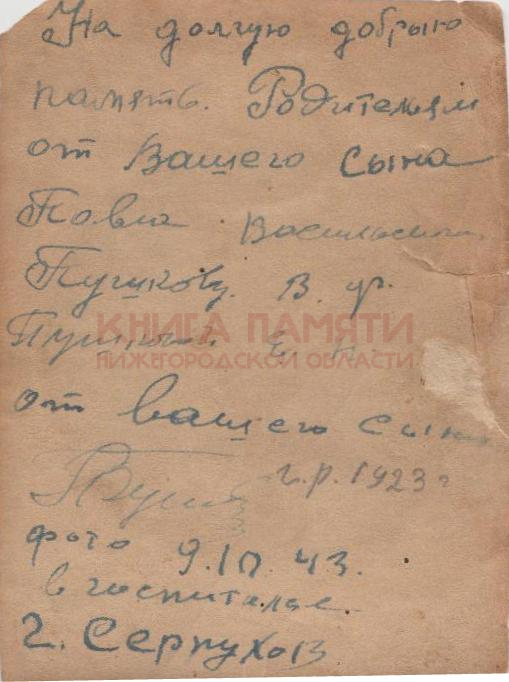 На долгую добрую
память. Родителям
от Вашего сына
Павла Васильевича
Пушкову. В. Ф.
КНИГА ПАМЯТИ
НИЖЕГОРОДСКОЙ ОБЛАСТИ
от вашего сына
г.р. 1923 г
фото 9. 43.
в госпитале.
г. Серпухов